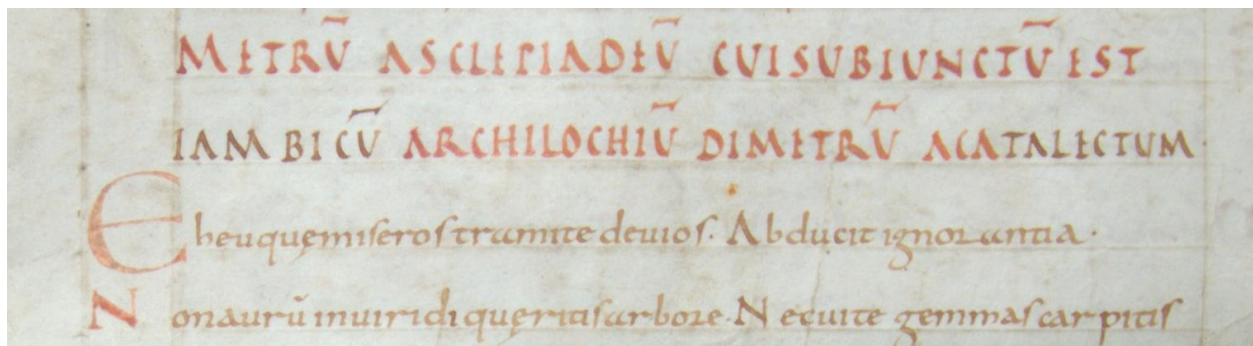 METRŪ ASCLEPIADEŪ CUI SUBIUNCTŪ EST
IAMBICŪ ARCHILOCHIŪ DIMETRŪ ACATALECTUM·
Eheu quę miseros tramite deuios· Abducit ignorantia·
Non aurū in uiridi quęritis arbore· Nec uite gemmas carpitis